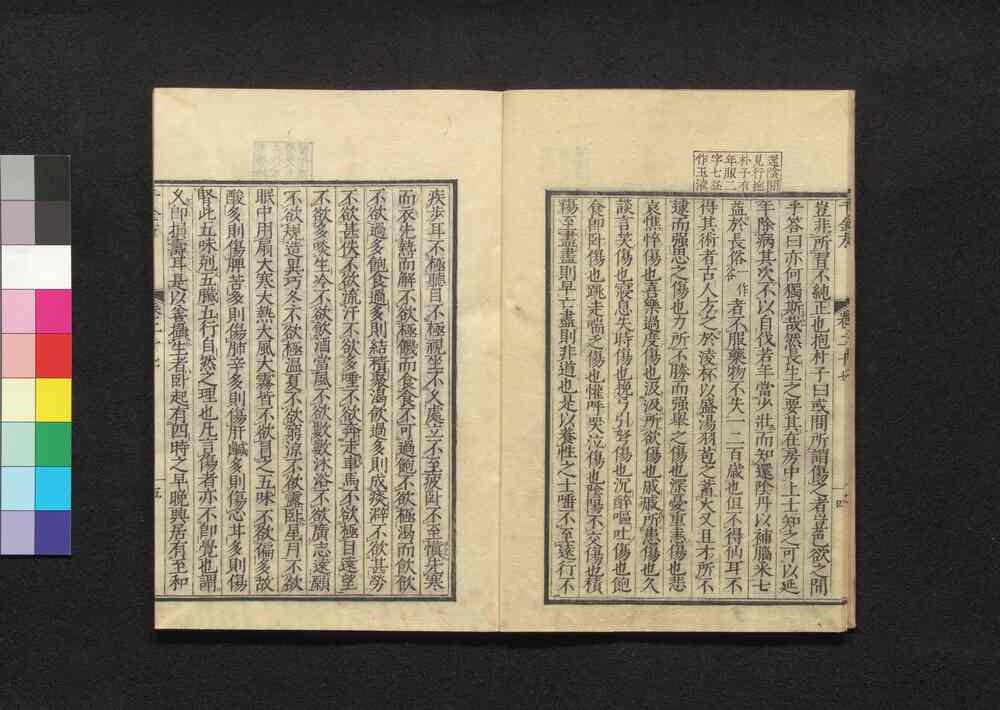 見行抱
朴子有
年服二
字七益
作玉液
豈非所習不純正也抱朴子曰或問所謂傷之者豈色欲之間
乎答曰亦何獨斯哉然長生之要其在房中上士知之可以延
年除病其次不以自伐若年當少壯而知還陰丹以補腦采七
益於長俗一作谷者不服藥物不失一二百歲也但不得仙耳不
得其術者古人方之於凌杯以盛湯羽苞之蓄火又且才所不
逮而強思之傷也力所不勝而強舉之傷也深憂重恚傷也悲
哀憔悴傷也喜樂過度傷也汲汲所欲傷也戚戚所患傷也久
談言笑傷也寢息失時傷也挽弓引弩傷也沉醉嘔吐傷也飽
食即臥傷也跳走喘乏傷也懽呼哭泣傷也陰陽不交傷也積
傷至盡盡則早亡盡則非道也是以養性之士唾不至遠行不
疾步耳不極聽目不極視坐不久處立不至疲臥不至懻先寒
而衣先熱而解不欲極飢而食食不可過飽不欲極渴而飲飲
不欲過多飽食過多則結積聚渴飲過多則成痰澼不欲甚勞
不欲甚佚不欲流汗不欲多唾不欲奔走車馬不欲極目遠望
不欲多啖生冷不欲飲酒當風不欲數數沐浴不欲廣志遠願
不欲規造異巧冬不欲極溫夏不欲窮涼不欲露臥星月不欲
眠中用扇大寒大熱大風大霧皆不欲冒之五味不欲偏多故
酸多則傷脾苦多則傷肺辛多則傷肝鹹多則傷心甘多則傷
腎此五味剋五臟五行自然之理也凡言傷者亦不即覺也謂
久即損壽耳是以善攝生者臥起有四時之早晚興居有至和
十五